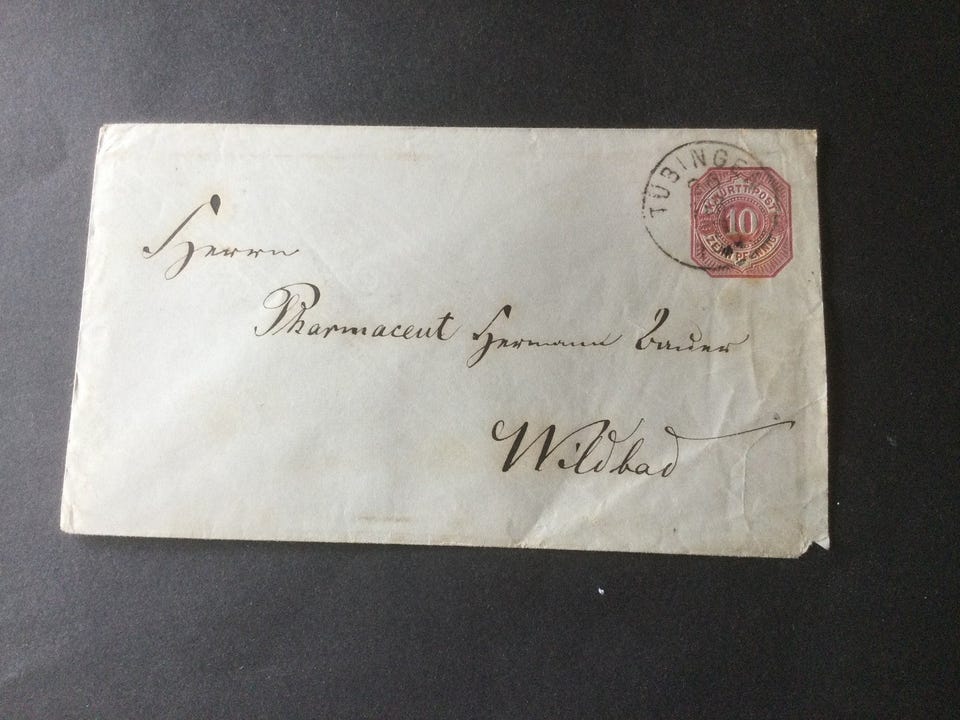 TÜBINGEN
K. WÜRTT. POST
10
ZEHN PFENNIG
Herrn
Pharmaceut Hermann Bauer
Wildbad